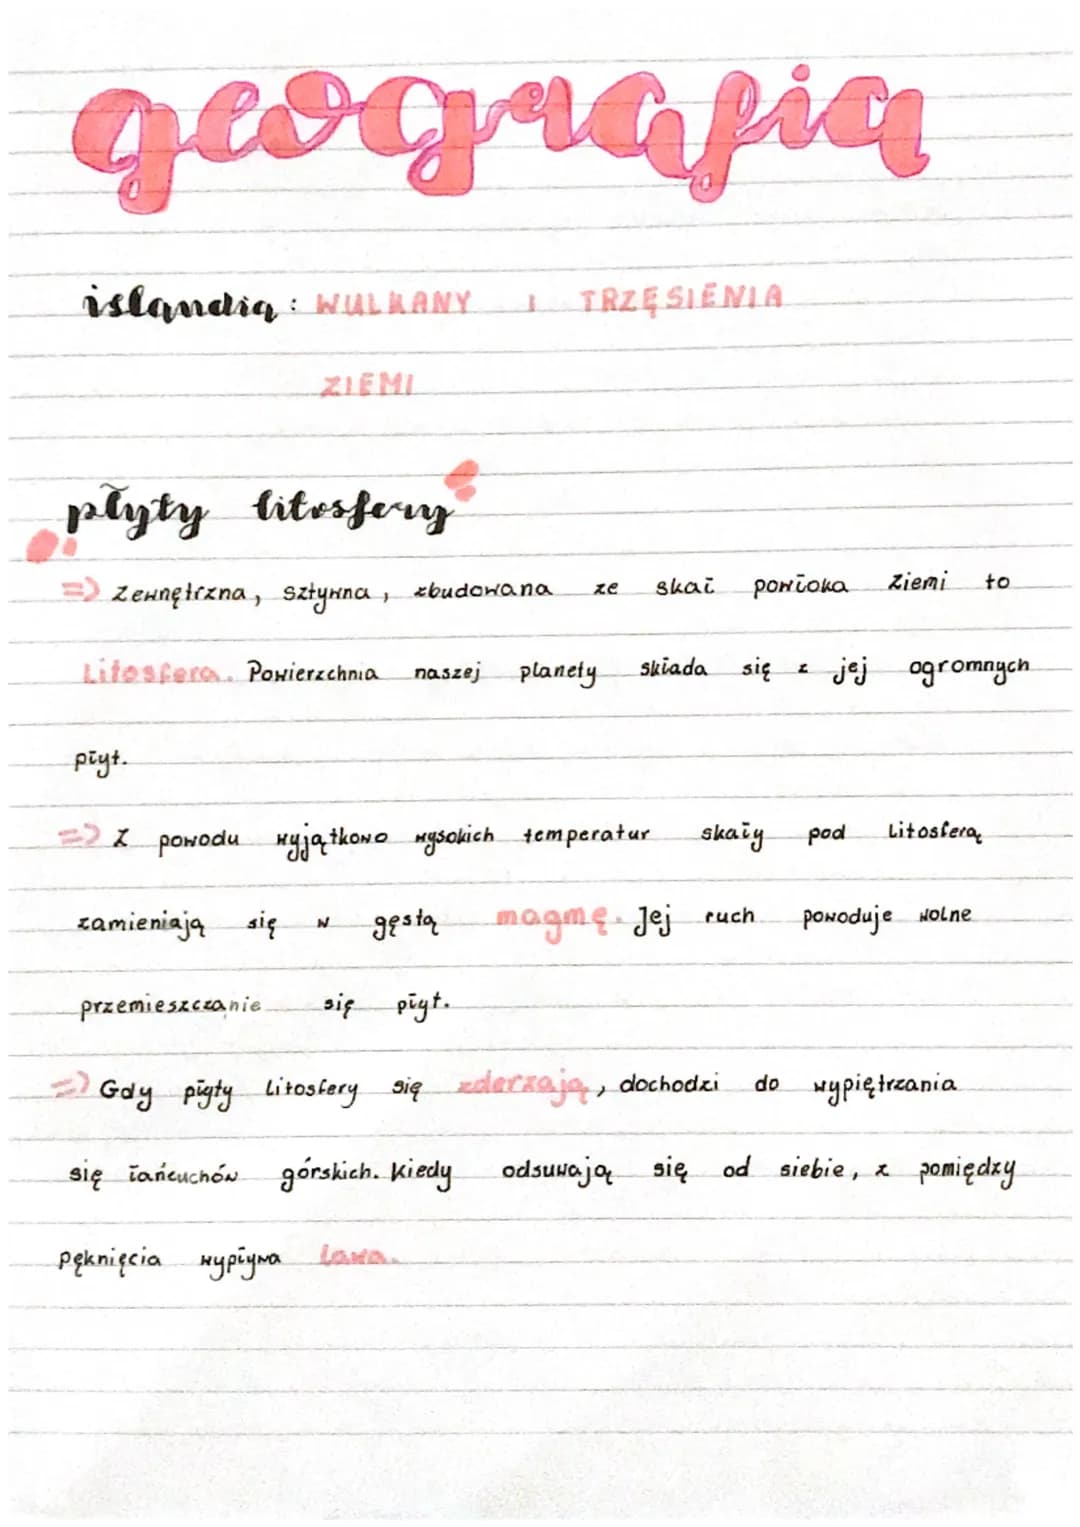 geografia
islandia: WULKANY I TRZĘSIENIA
ZIEMI
płyty litosfery
=> Zewnętrzna, sztywna, zbudowana ze skał powłoka Ziemi to
Litosfera. Powierzchnia naszej planety składa się z jej ogromnych
płyt.
=> Z powodu wyjątkowo wysokich temperatur skały pod litosferą
zamieniają się w gęstą magmę. Jej ruch powoduje wolne
przemieszczanie się płyt.
=> Gdy płyty litosfery się zderzają, dochodzi do wypiętrzania
się łańcuchów górskich. Kiedy odsuwają się od siebie, z pomiędzy
pęknięcia wypływa lawa.